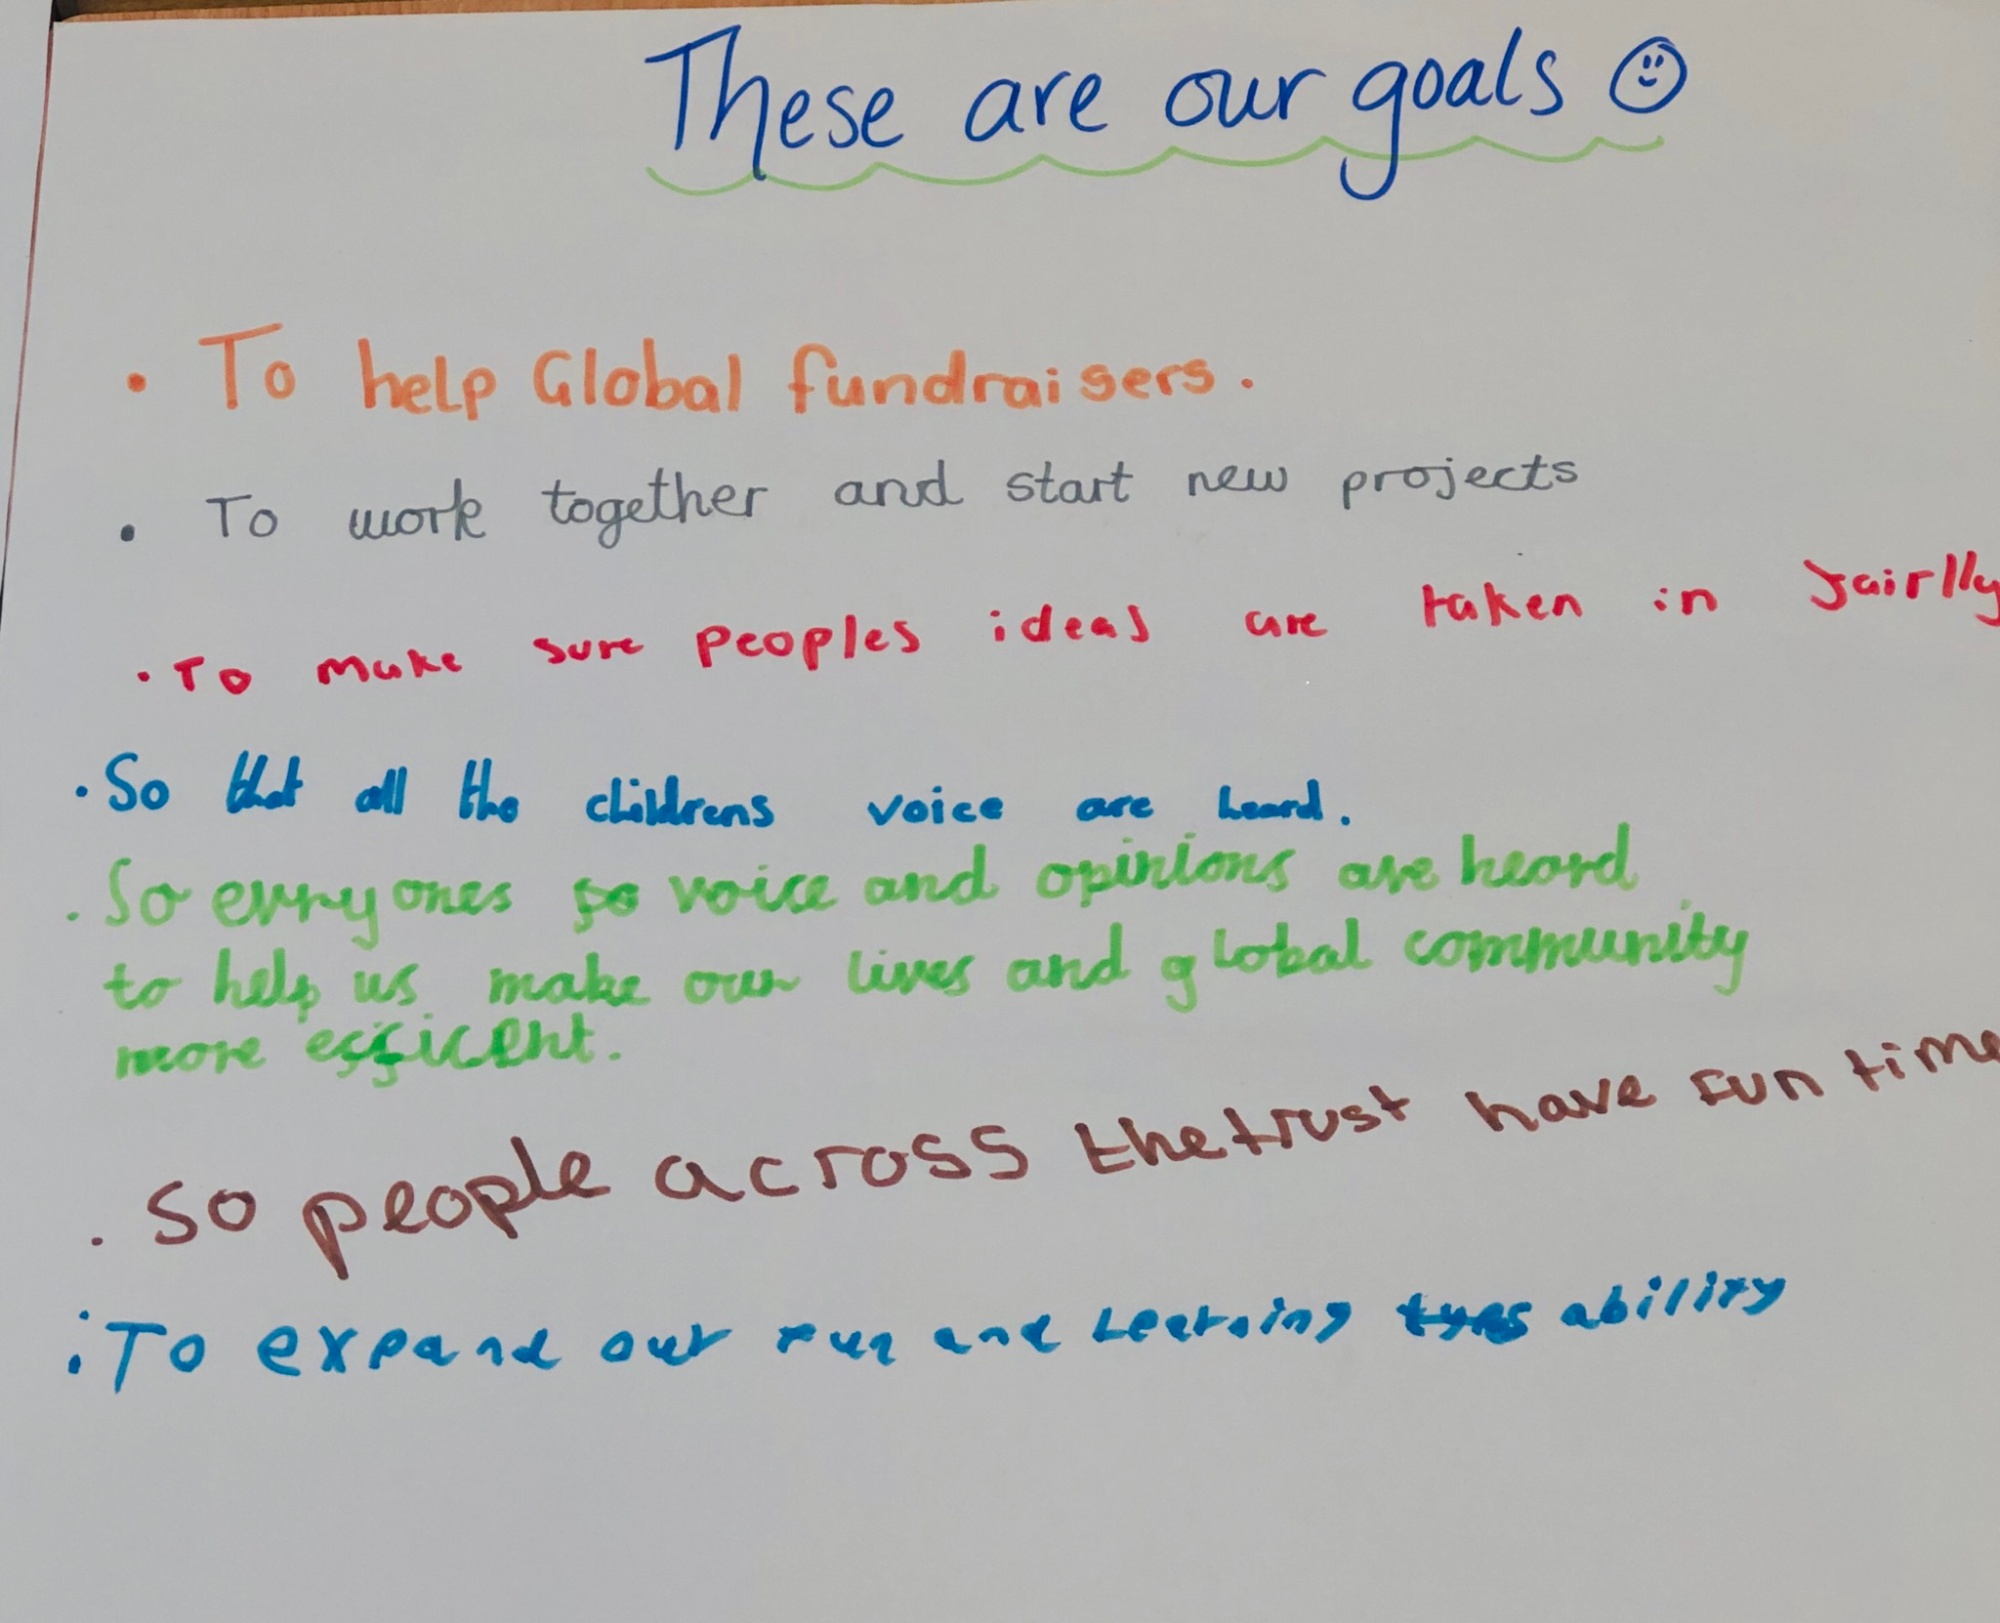 These are our goals
• To help Global fundraisers.
• To work together and start new projects
• To make sure peoples ideas are taken in fairlly
• So that all the childrens voice are heard.
• So evryones so voice and opinions are heard
to help us make our lives and global community
more efficent.
• So people across the trust have fun time
• To expand our fun and learning ability